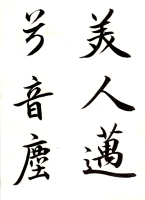 美人邁
兮音塵